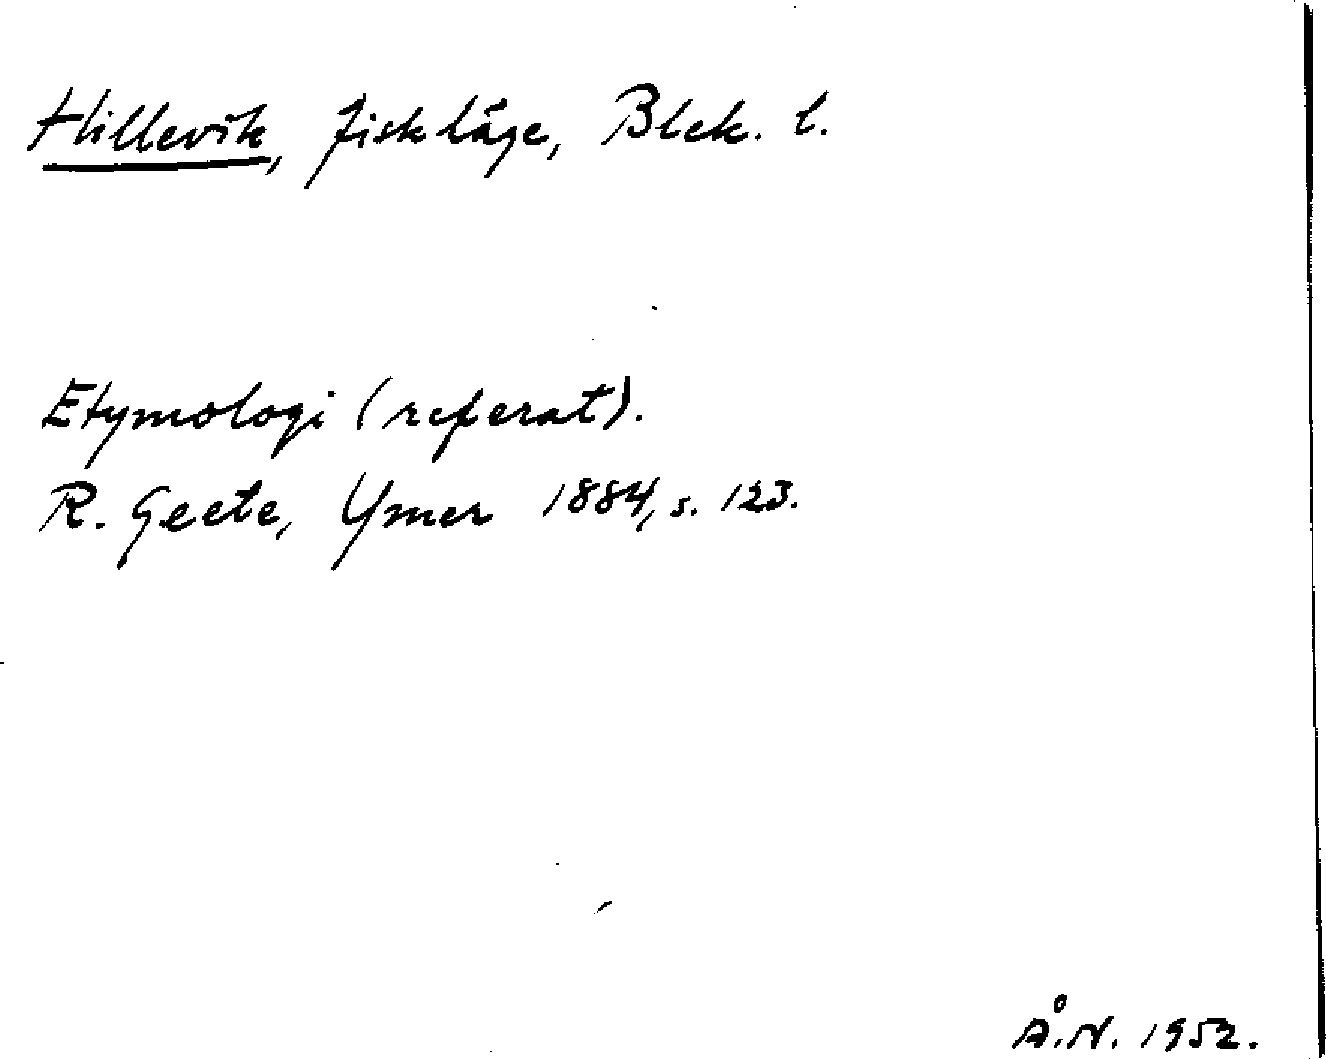 Hillevik, fiskläge, Blek. l.
Etymologi (referat).
R. Geete, Ymer 1884, s. 123.
Å.N. 1952.